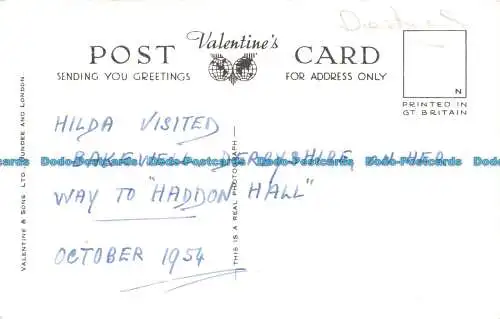 Valentine's
POST CARD
SENDING YOU GREETINGS FOR ADDRESS ONLY
N
PRINTED IN
GT. BRITAIN
HILDA VISITED
BAKEWELL DERBYSHIRE, ON HER
WAY TO "HADDON HALL"
OCTOBER 1954
VALENTINE & SONS LTD. DUNDEE AND LONDON.
THIS IS A REAL PHOTOGRAPH
Dodo-Postcards Dodo-Postcards Dodo-Postcards Dodo-Postcards Dodo-Postcards